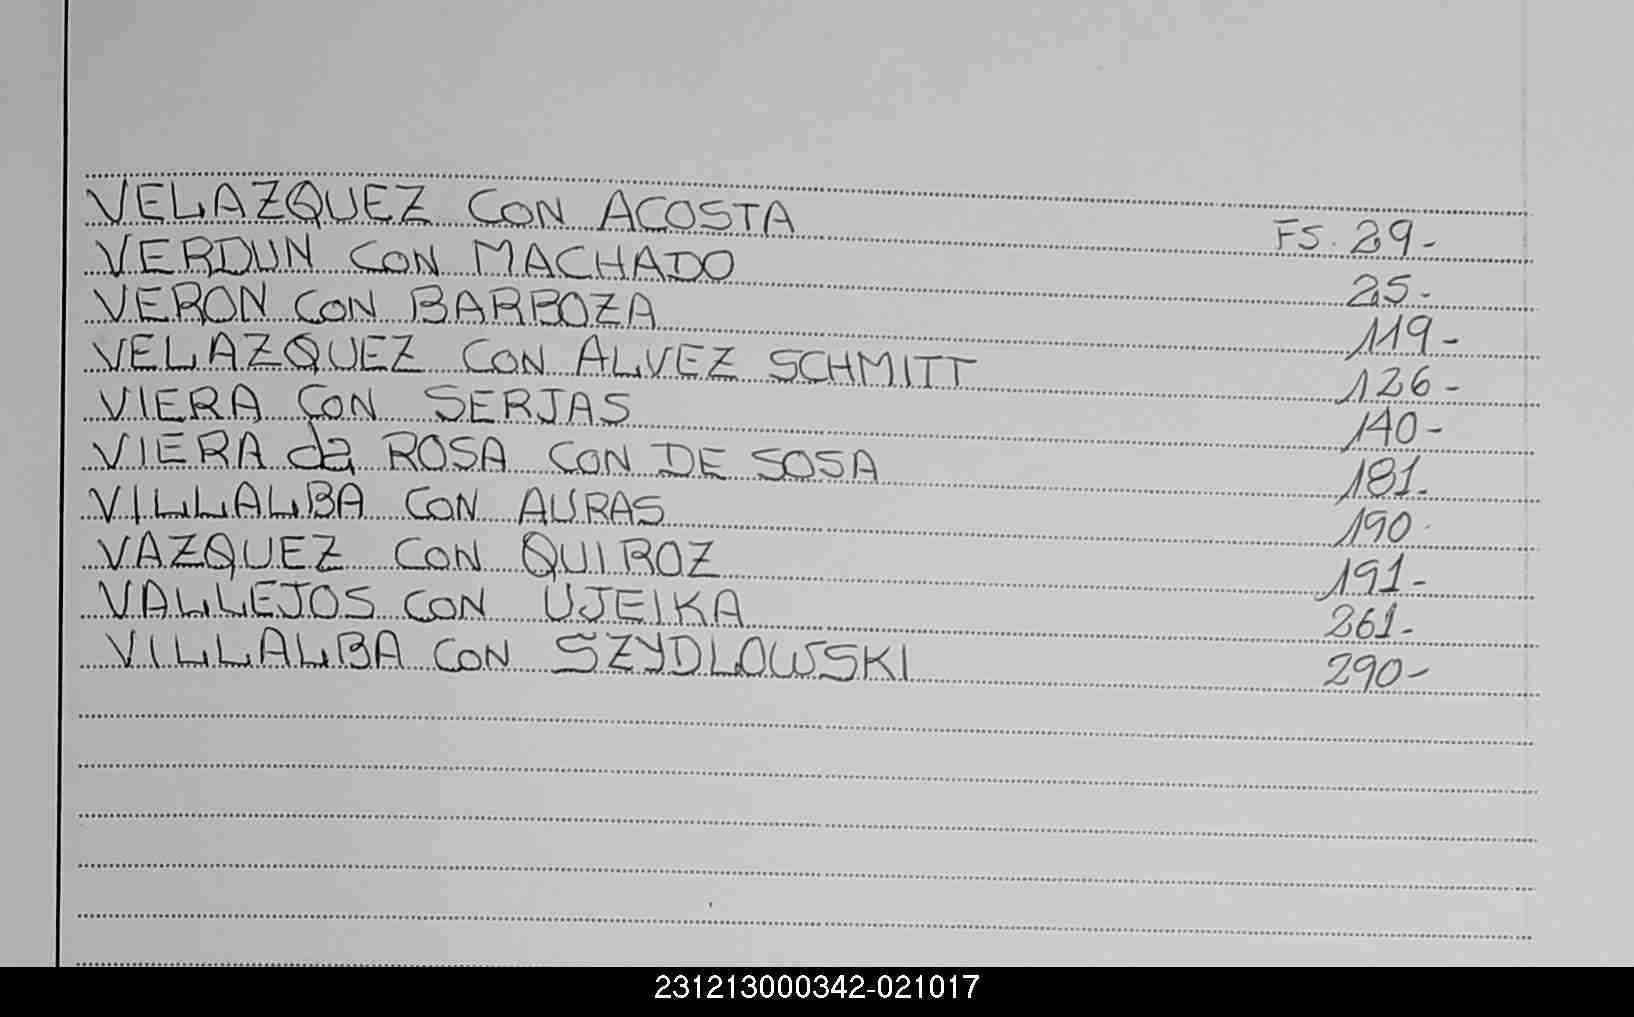 VELAZQUEZ CON ACOSTA FS. 29-
VERDUN CON MACHADO 25-
VERON CON BARBOZA 119-
VELAZQUEZ CON ALVEZ SCHMITT 126-
VIERA CON SERJAS 140-
VIERA da ROSA CON DE SOSA 181-
VILLALBA CON AURAS 190-
VAZQUEZ CON QUIROZ 191-
VALLEJOS CON UJEIKA 261-
VILLALBA CON SZYDLOWSKI 290-
231213000342-021017